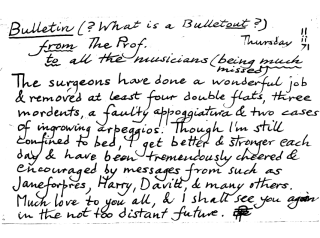 Bulletin (? What is a Bulletout ?)
from The Prof. Thursday 11/11/71
to all the musicians (being much
missed)
The surgeons have done a wonderful job
& removed at least four double flats, three
mordents, a faulty appoggiatura & two cases
of ingrowing arpeggios. Though I'm still
confined to bed, I get better & stronger each
day & have been tremendously cheered &
encouraged by messages from such as
Janeforbres, Harry, Davitt, & many others.
Much love to you all, & I shall see you again
in the not too distant future.